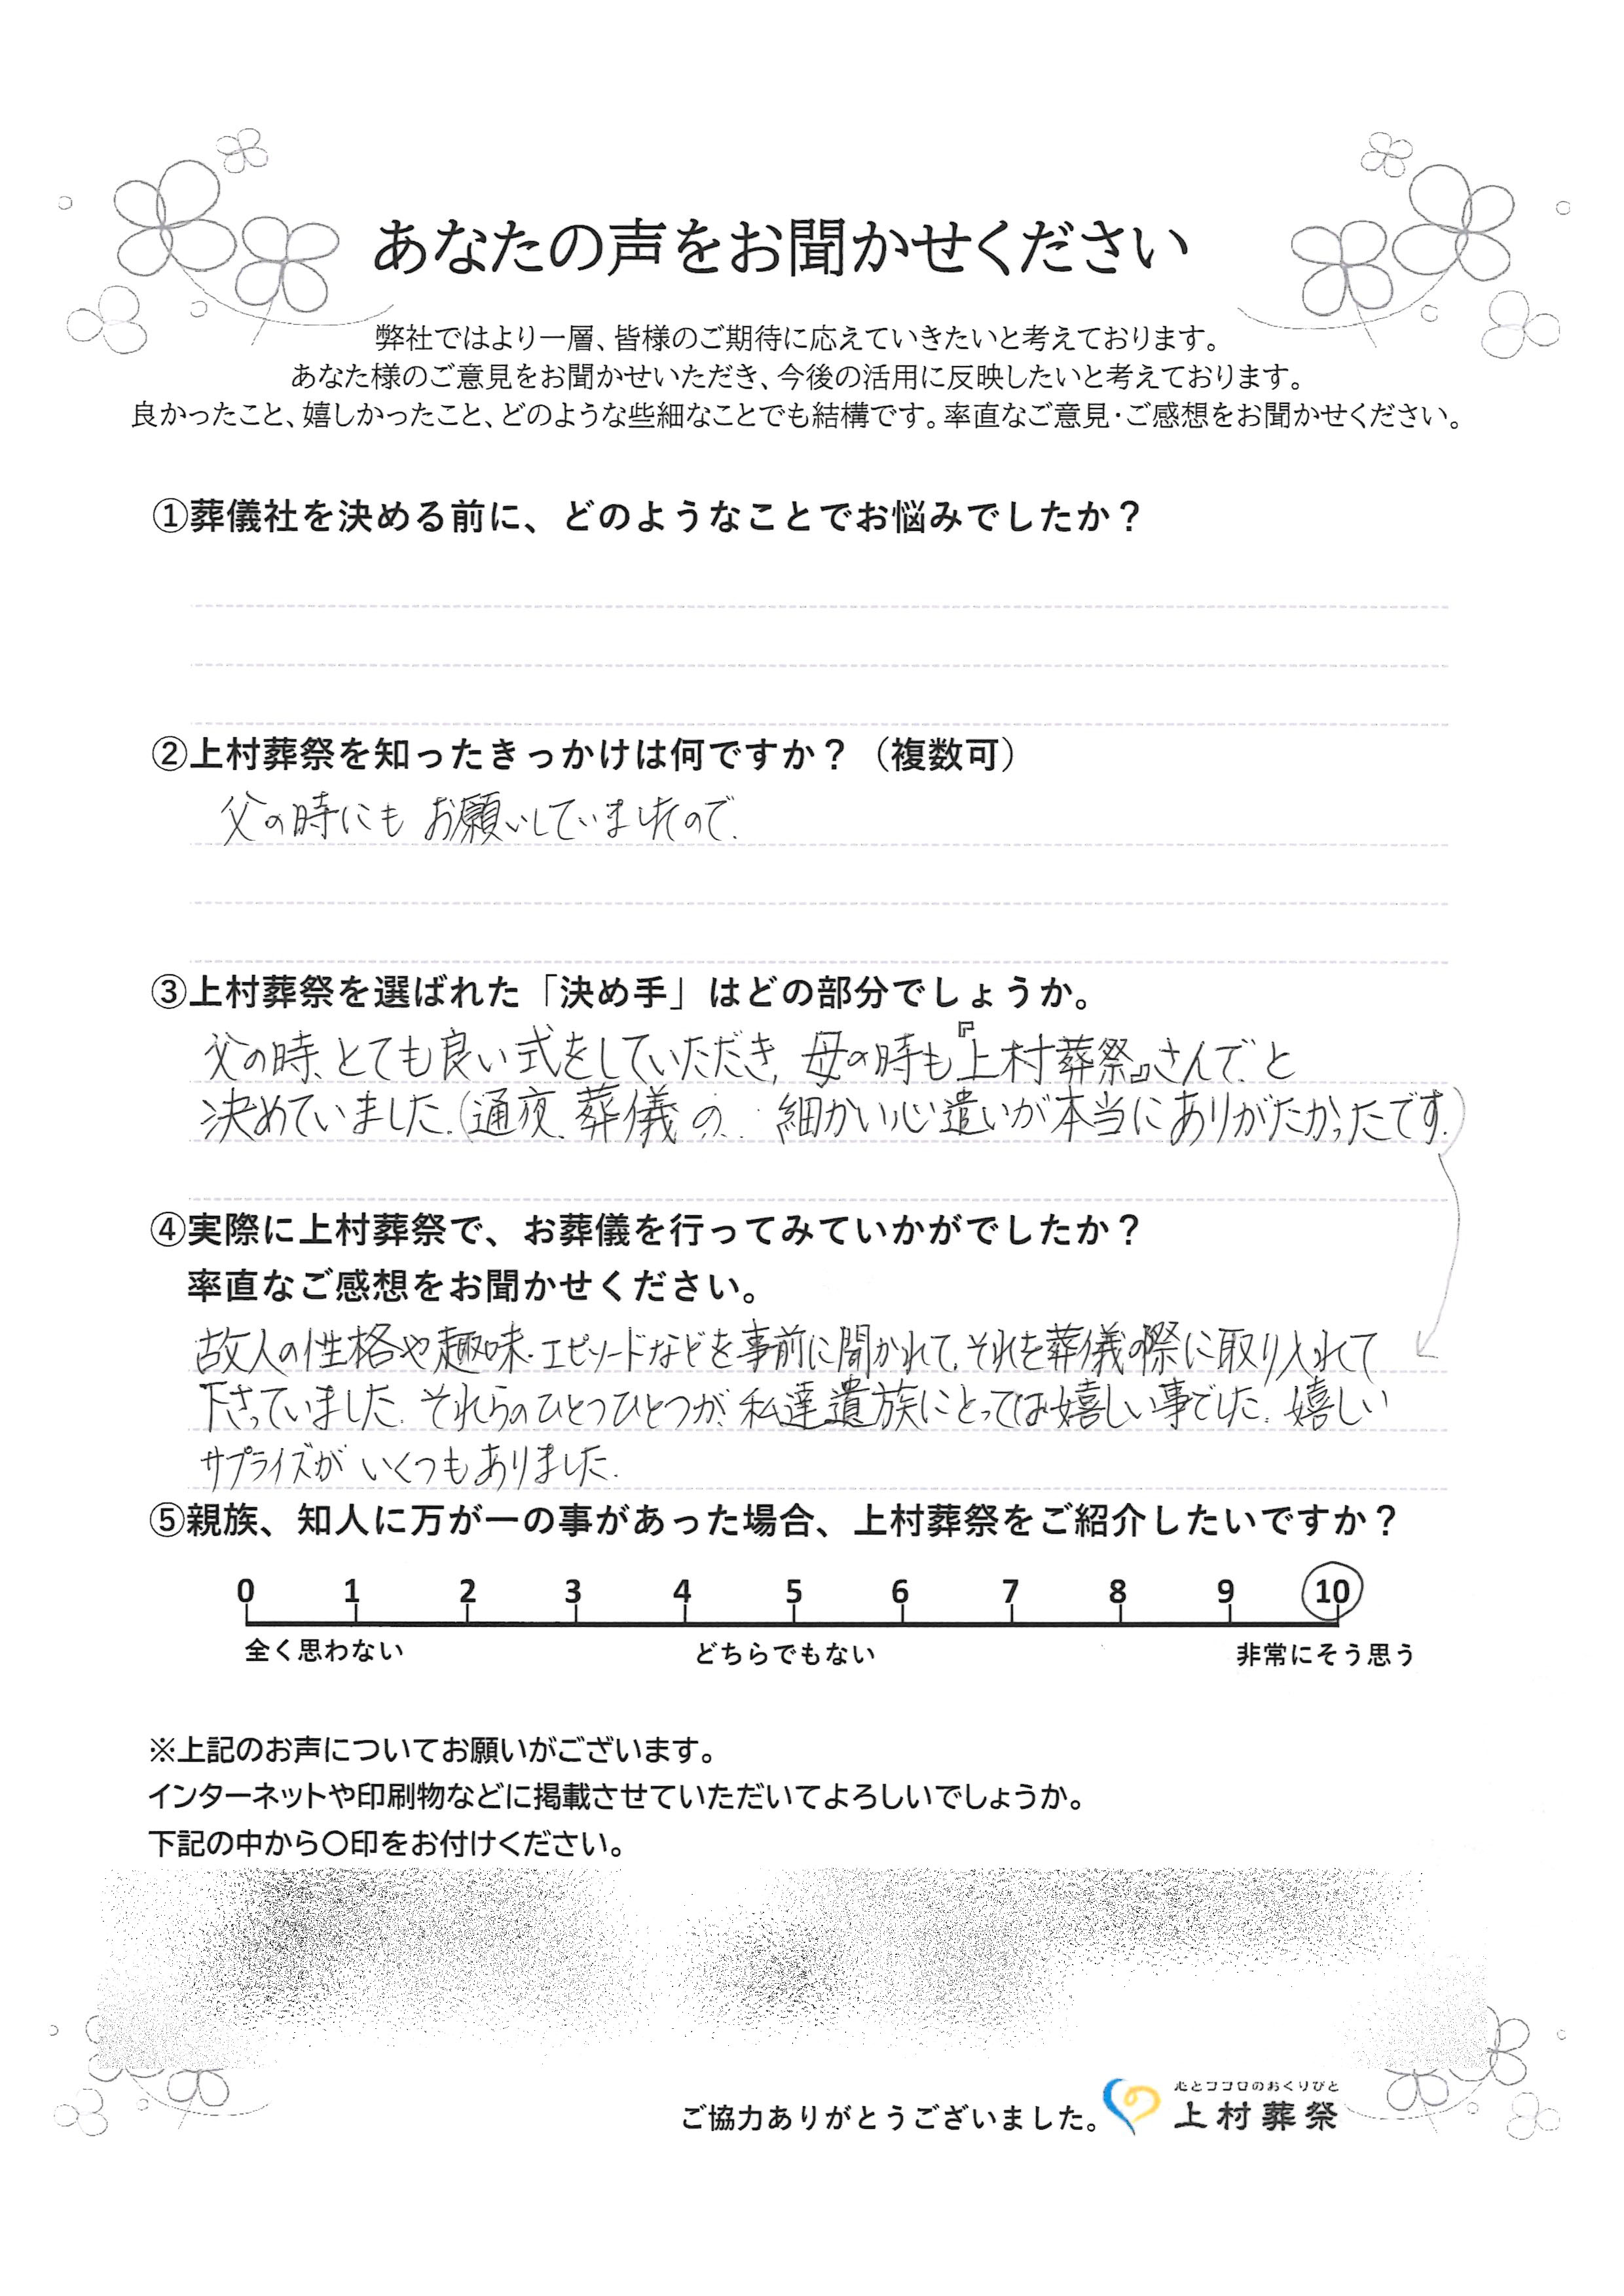 あなたの声をお聞かせください
弊社ではより一層、皆様のご期待に応えていきたいと考えております。
あなた様のご意見をお聞かせいただき、今後の活用に反映したいと考えております。
良かったこと、嬉しかったこと、どのような些細なことでも結構です。率直なご意見・ご感想をお聞かせください。
①葬儀社を決める前に、どのようなことでお悩みでしたか？
②上村葬祭を知ったきっかけは何ですか？（複数可）
父の時にも お願いしていましたので.
③上村葬祭を選ばれた「決め手」はどの部分でしょうか。
父の時、とても良い式をしていただき, 母の時も『上村葬祭』さんで、と
決めていました.(通夜、葬儀の、細かい心遣いが本当にありがたかったです.)
④実際に上村葬祭で、お葬儀を行ってみていかがでしたか？
率直なご感想をお聞かせください。
故人の性格や趣味・エピソードなどを事前に聞かれて、それを葬儀の際に取り入れて
下さっていました. それらのひとつひとつが、私達遺族にとっては嬉しい事でした. 嬉しい
サプライズが いくつもありました.
⑤親族、知人に万が一の事があった場合、上村葬祭をご紹介したいですか？
0 1 2 3 4 5 6 7 8 9 10
全く思わない どちらでもない 非常にそう思う
※上記のお声についてお願いがございます。
インターネットや印刷物などに掲載させていただいてよろしいでしょうか。
下記の中から〇印をお付けください。
心とココロのおくりびと
ご協力ありがとうございました。 上村葬祭